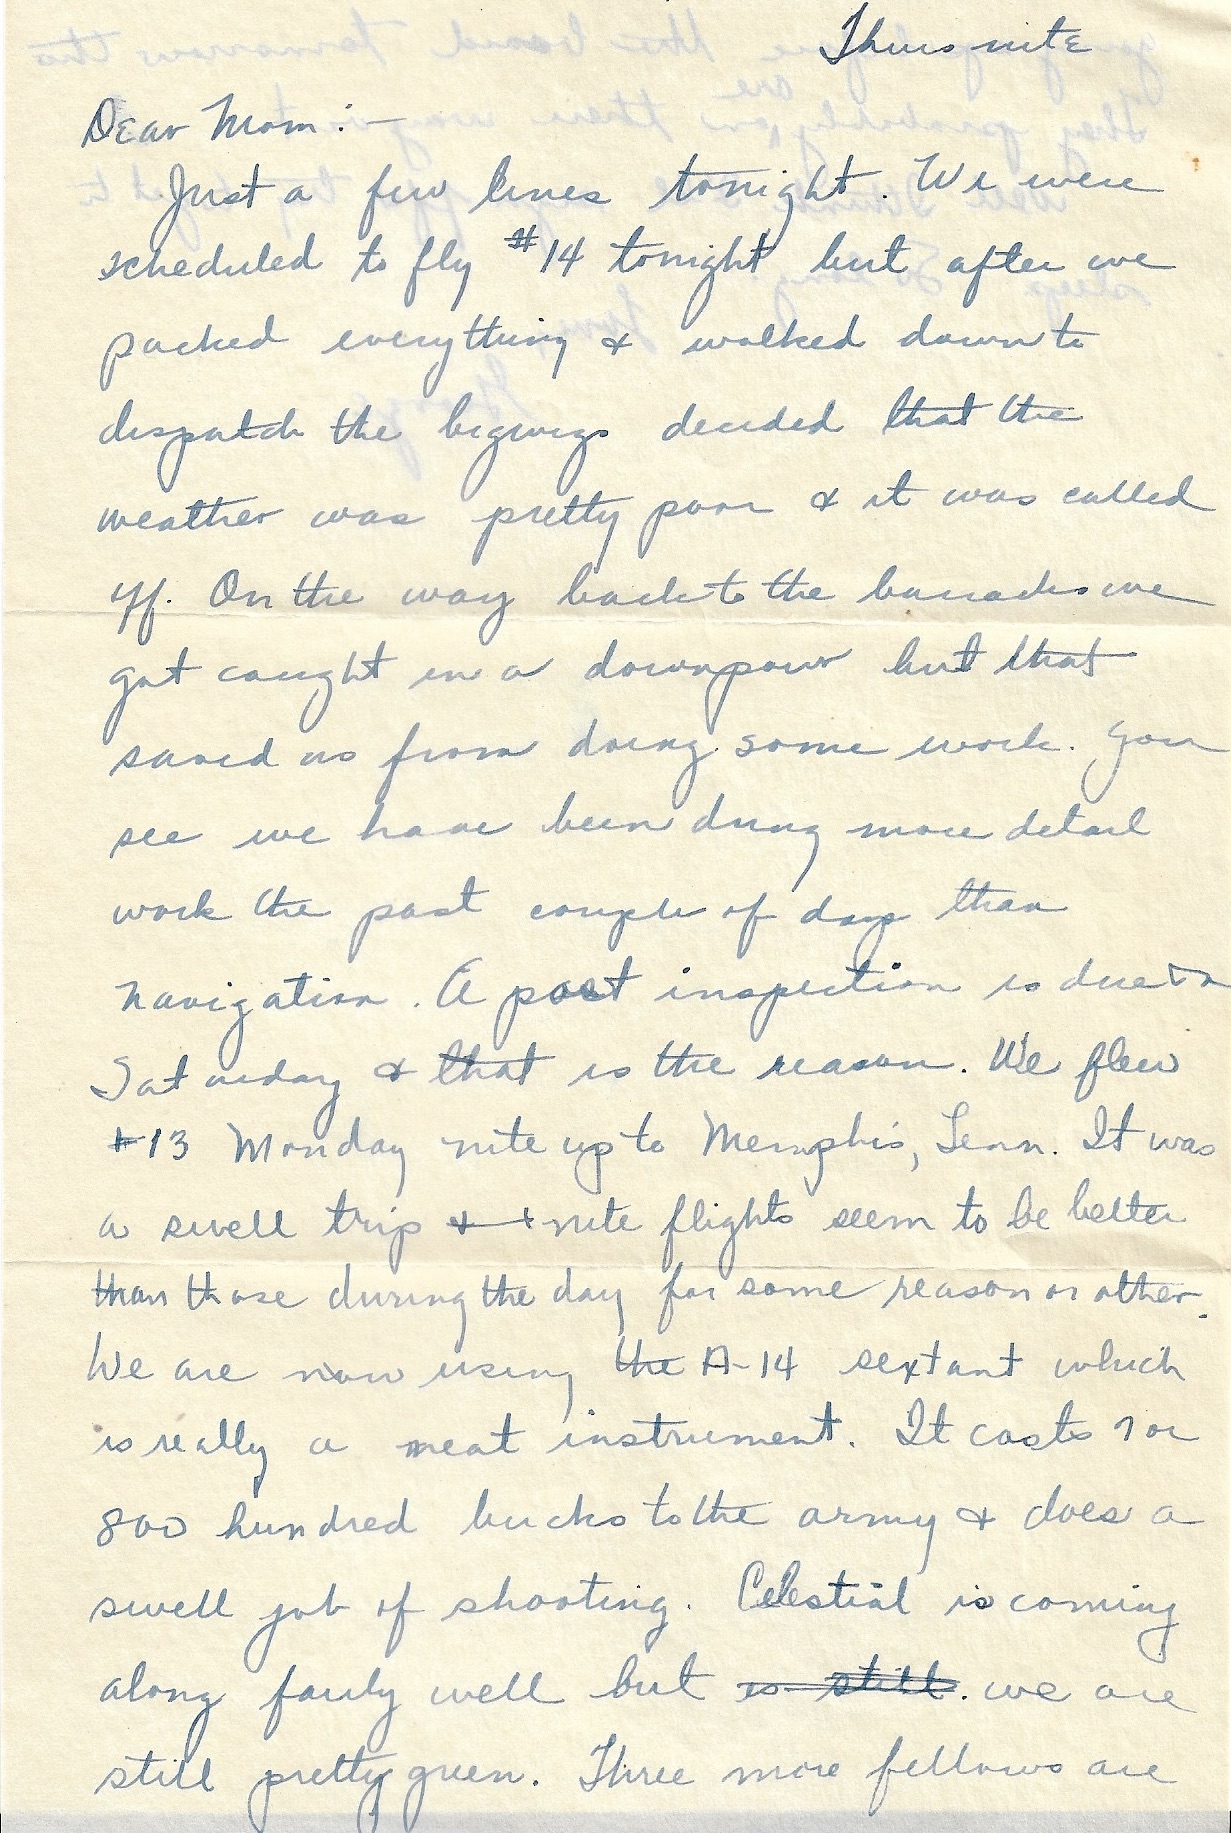 Thurs nite
Dear Mom:-
Just a few lines tonight. We were
scheduled to fly #14 tonight but after we
packed everything & walked down to
dispatch the bigwigs decided that the
weather was pretty poor & it was called
off. On the way back to the barracks we
got caught in a downpour but that
saved us from doing some work. You
see we have been doing more detail
work the past couple of days than
navigation. A post inspection is due on
Saturday & that is the reason. We flew
#13 Monday nite up to Memphis, Tenn. It was
a swell trip & nite flights seem to be better
than those during the day for some reason or other.
We are now using the A-14 sextant which
is really a neat instrument. It costs 7 or
800 hundred bucks to the army & does a
swell job of shooting. Celestial is coming
along fairly well but is still. we are
still pretty green. Three more fellows are